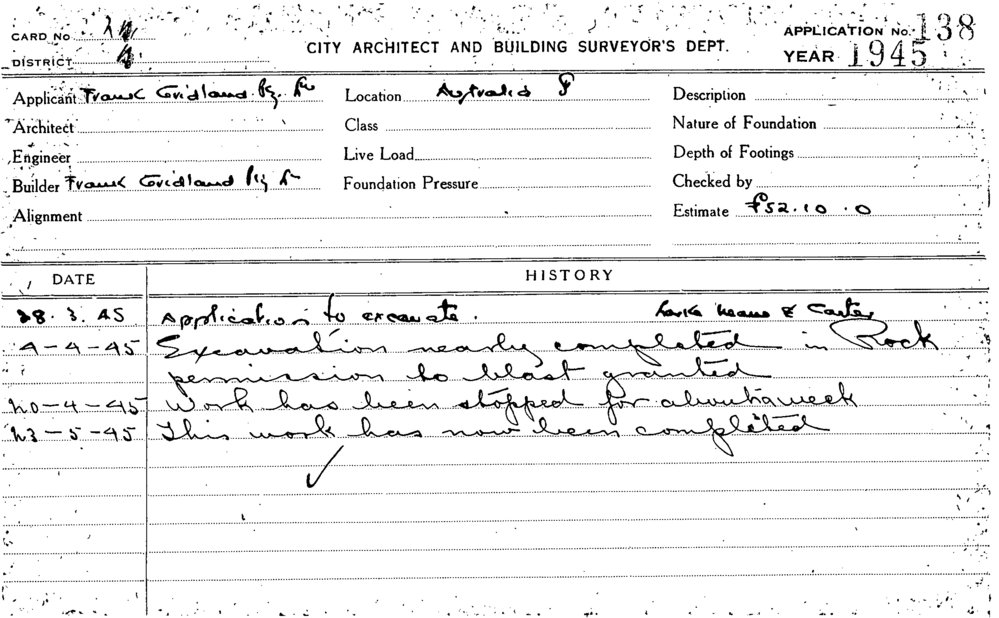 CARD No
APPLICATION No. 138
CITY ARCHITECT AND BUILDING SURVEYOR'S DEPT.
DISTRICT
YEAR 1945
Applicant Frank Cridland Pty
Location Australia
Description
Architect
Class
Nature of Foundation
Engineer
Live Load
Depth of Footings
Builder Frank Cridland Pty
Foundation Pressure
Checked by
Alignment
Estimate £52.10.0
DATE HISTORY
28.3.45 Application to excavate. & Carter
4-4-45 Excavation nearly completed in Rock
permission to blast granted
20-4-45 Work has been stopped for about a week
23-5-45 This work has now been completed